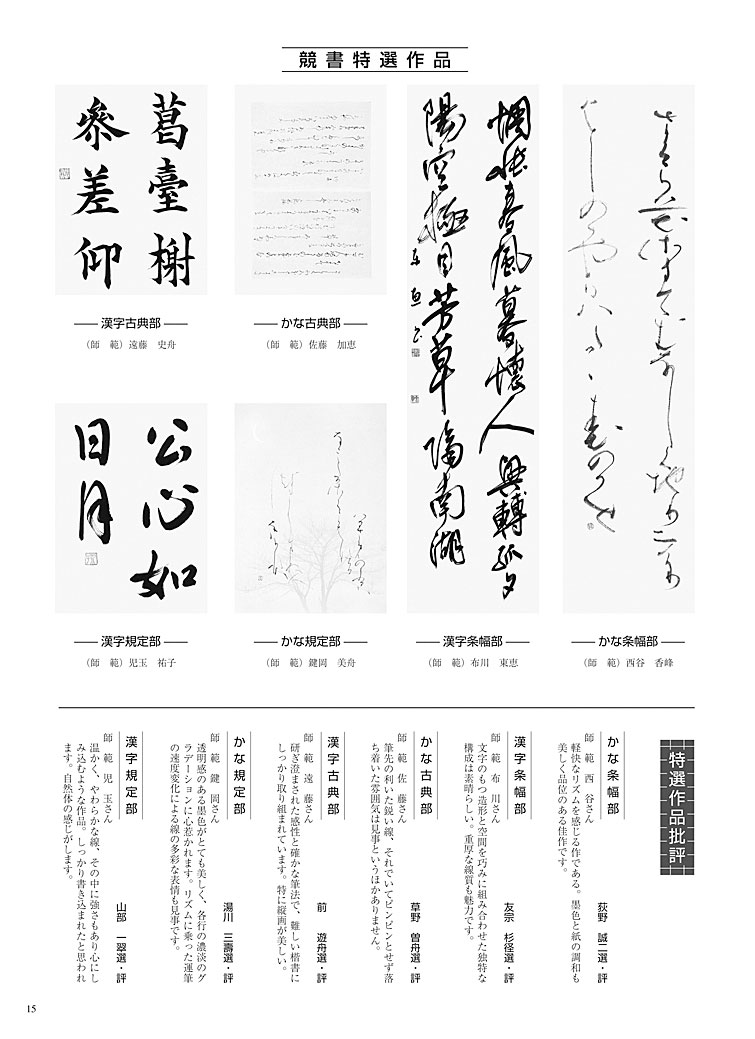 競書特選作品
葛臺榭
參差仰
漢字古典部
（師　範）遠藤　史舟
かな古典部
（師　範）佐藤　加恵
惆悵春風暮懐人興轉孤夕
陽空極目芳草隔南湖
東恵
公心如
日月
漢字規定部
（師　範）児玉　祐子
かな規定部
（師　範）鍵岡　美舟
漢字条幅部
（師　範）布川　東恵
かな条幅部
（師　範）西谷　香峰
特選作品批評
かな条幅部
荻野　誠二選・評
師　範　西　谷さん
軽快なリズムを感じる作である。墨色と紙の調和も
美しく品位のある佳作です。
漢字条幅部
友宗　杉径選・評
師　範　布　川さん
文字のもつ造形と空間を巧みに組み合わせた独特な
構成は素晴らしい。重厚な線質も魅力です。
かな古典部
草野　曽舟選・評
師　範　佐　藤さん
筆先の利いた鋭い線、それでいてピンピンとせず落
ち着いた雰囲気は見事というほかありません。
漢字古典部
前　遊舟選・評
師　範　遠　藤さん
研ぎ澄まされた感性と確かな筆法で、難しい楷書に
しっかり取り組まれています。特に縦画が美しい。
かな規定部
湯川　三壽選・評
師　範　鍵　岡さん
透明感のある墨色がとても美しく、各行の濃淡のグ
ラデーションに心惹かれます。リズムに乗った運筆
の速度変化による線の多彩な表情も見事です。
漢字規定部
山部　一翠選・評
師　範　児　玉さん
温かく、やわらかな線、その中に強さもあり心にし
み込むような作品。しっかり書き込まれたと思われ
ます。自然体の感じがします。
15